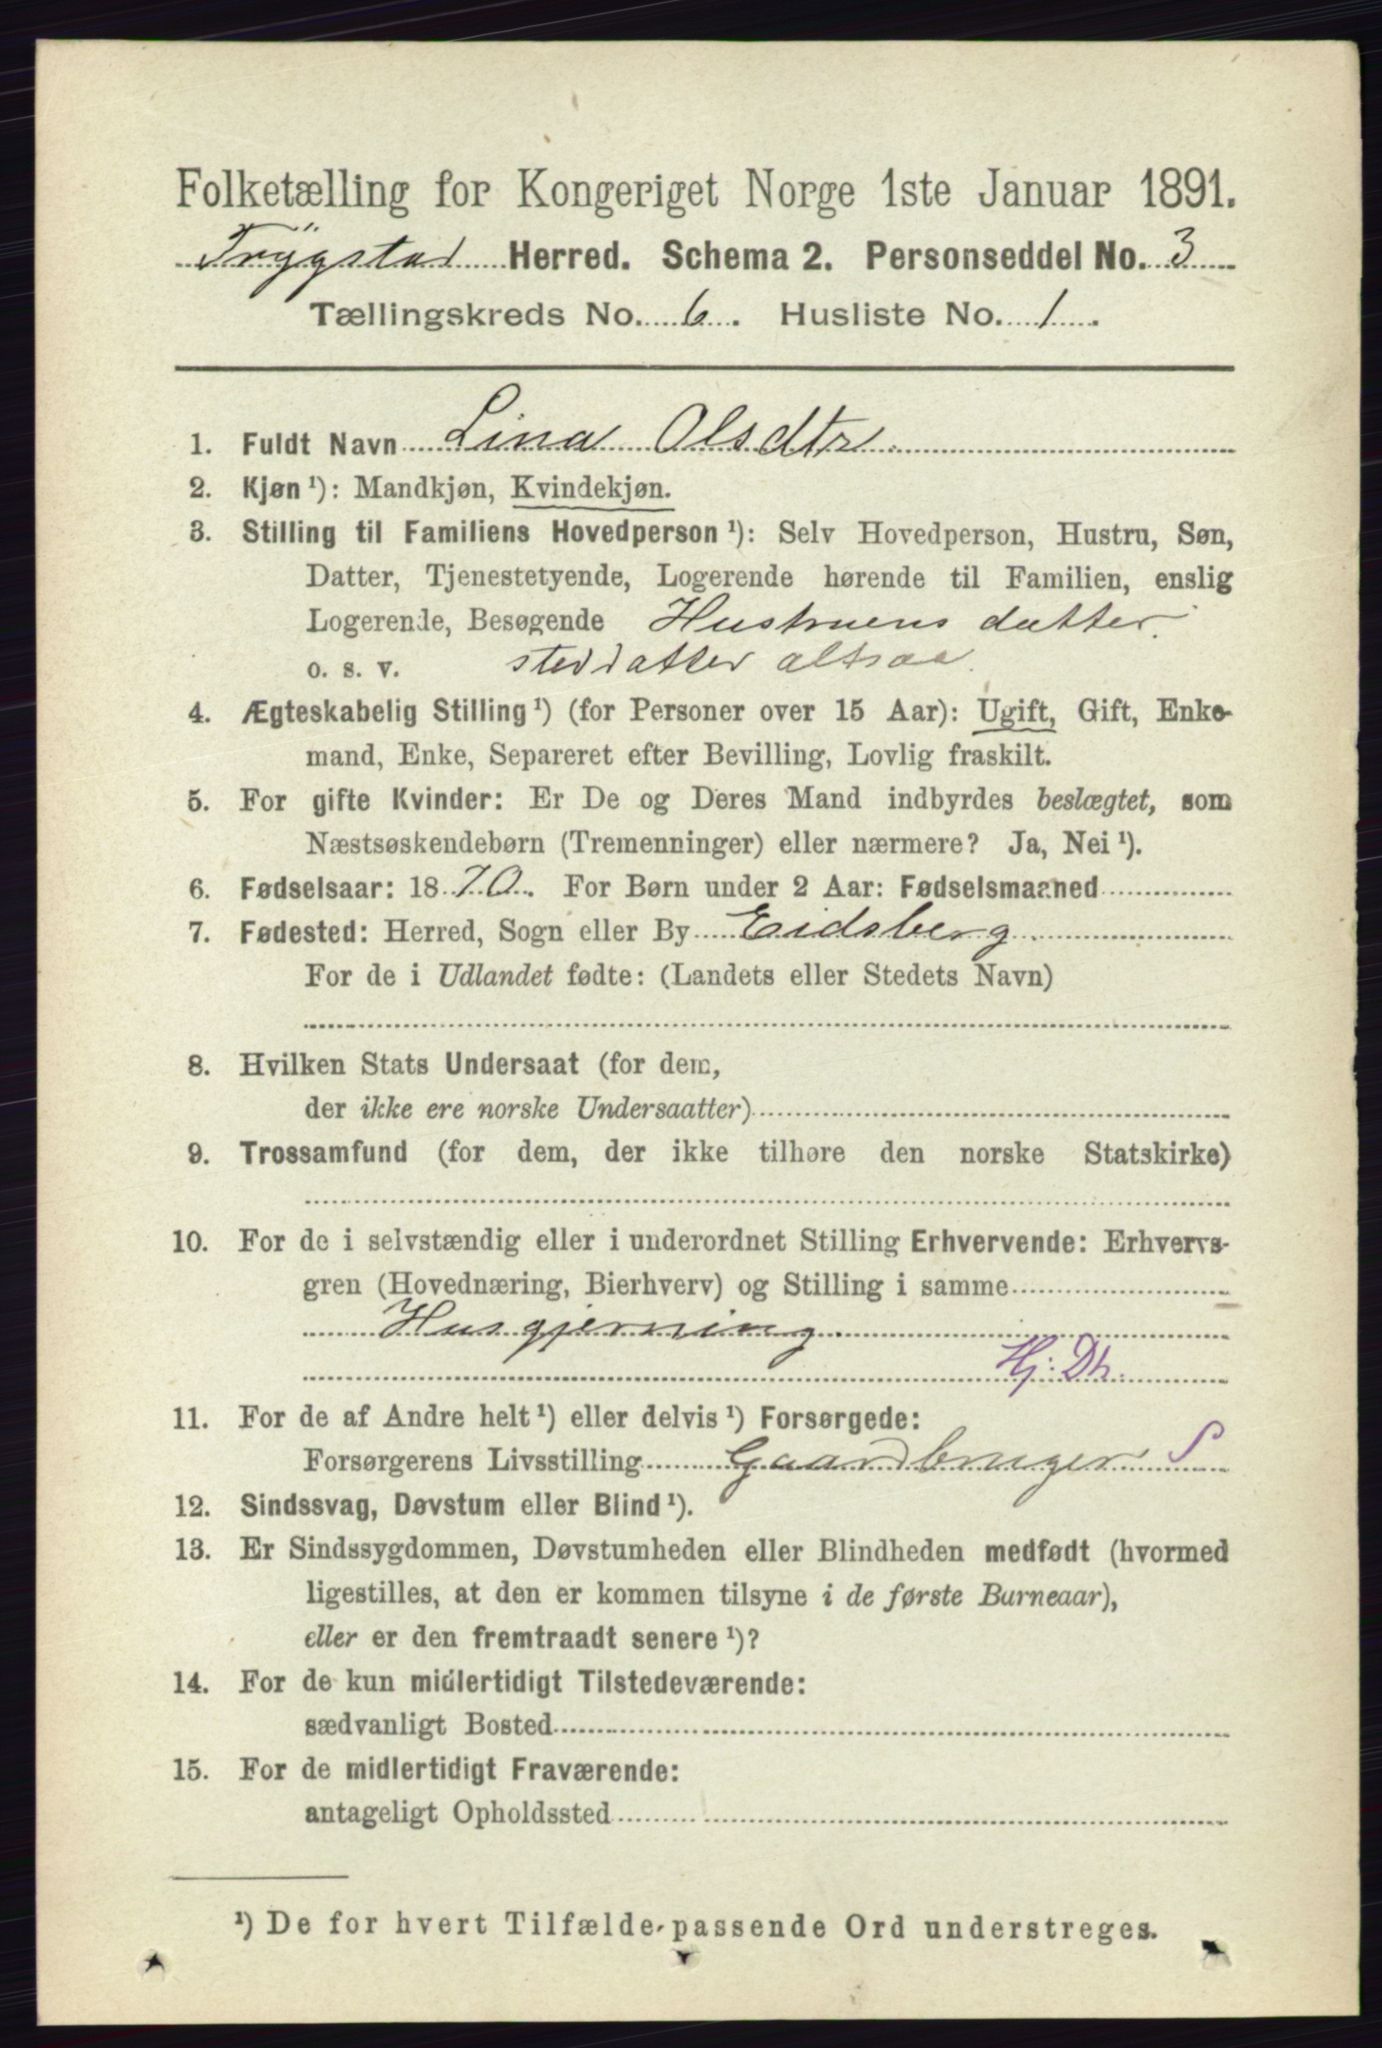 Folketælling for Kongeriget Norge 1ste Januar 1891.
Trygstad Herred. Schema 2. Personseddel No. 3
Tællingskreds No. 6. Husliste No. 1.
1. Fuldt Navn Lina Olsdtr.
2. Kjøn ¹): Mandkjøn, Kvindekjøn.
3. Stilling til Familiens Hovedperson ¹): Selv Hovedperson, Hustru, Søn,
Datter, Tjenestetyende, Logerende hørende til Familien, enslig
Logerende, Besøgende Hustruens datter.
o. s. v. steddatter altsaa
4. Ægteskabelig Stilling ¹) (for Personer over 15 Aar): Ugift, Gift, Enke-
mand, Enke, Separeret efter Bevilling, Lovlig fraskilt.
5. For gifte Kvinder: Er De og Deres Mand indbyrdes beslægtet, som
Næstsøskendebørn (Tremenninger) eller nærmere? Ja, Nei ¹).
6. Fødselsaar: 1870. For Børn under 2 Aar: Fødselsmaaned
7. Fødested: Herred, Sogn eller By Eidsberg
For de i Udlandet fødte: (Landets eller Stedets Navn)
8. Hvilken Stats Undersaat (for dem,
der ikke ere norske Undersaatter)
9. Trossamfund (for dem, der ikke tilhøre den norske Statskirke)
10. For de i selvstændig eller i underordnet Stilling Erhvervende: Erhvervs-
gren (Hovednæring, Bierhverv) og Stilling i samme
Husgjerning
Hj: Dh.
11. For de af Andre helt ¹) eller delvis ¹) Forsørgede:
Forsørgerens Livsstilling Gaardbruger S
12. Sindssvag, Døvstum eller Blind ¹).
13. Er Sindssygdommen, Døvstumheden eller Blindheden medfødt (hvormed
ligestilles, at den er kommen tilsyne i de første Barneaar),
eller er den fremtraadt senere ¹)?
14. For de kun midlertidigt Tilstedeværende:
sædvanligt Bosted
15. For de midlertidigt Fraværende:
antageligt Opholdssted
¹) De for hvert Tilfælde passende Ord understreges.